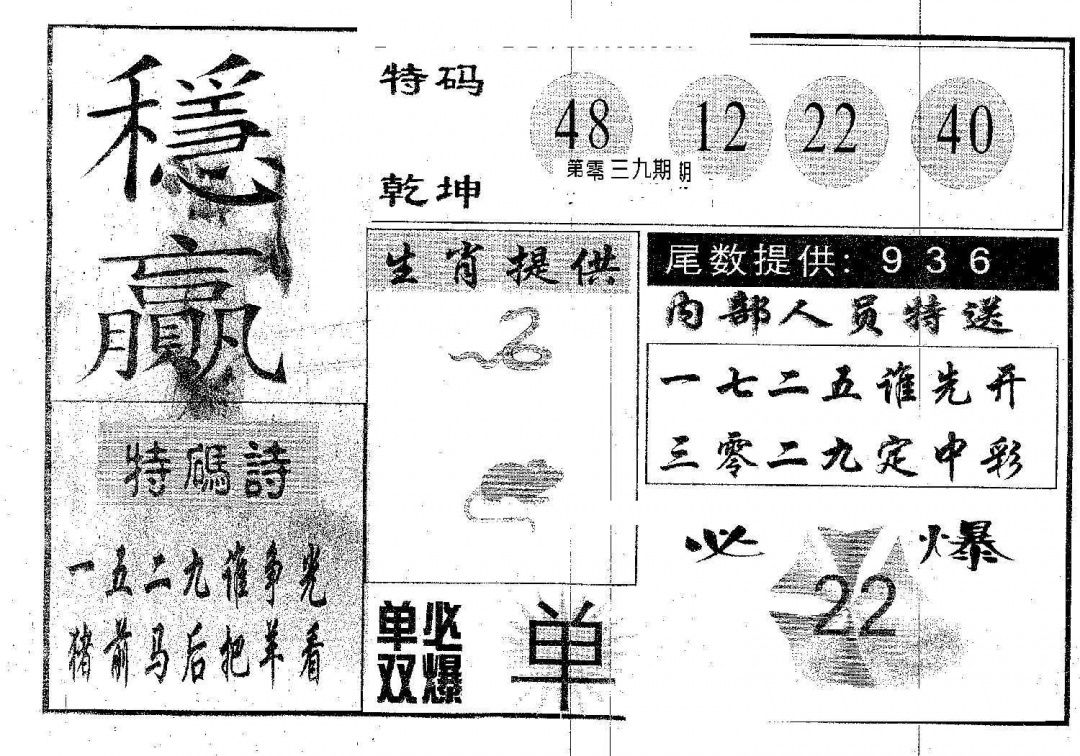 穩贏
特码
乾坤
48 12 22 40
第零三九期
期
生肖提供
尾数提供: 9 3 6
内部人员特送
一七二五谁先开
三零二九定中彩
特碼詩
一五二九谁争光
猪前马后把羊看
单双
必爆
单
必爆
22